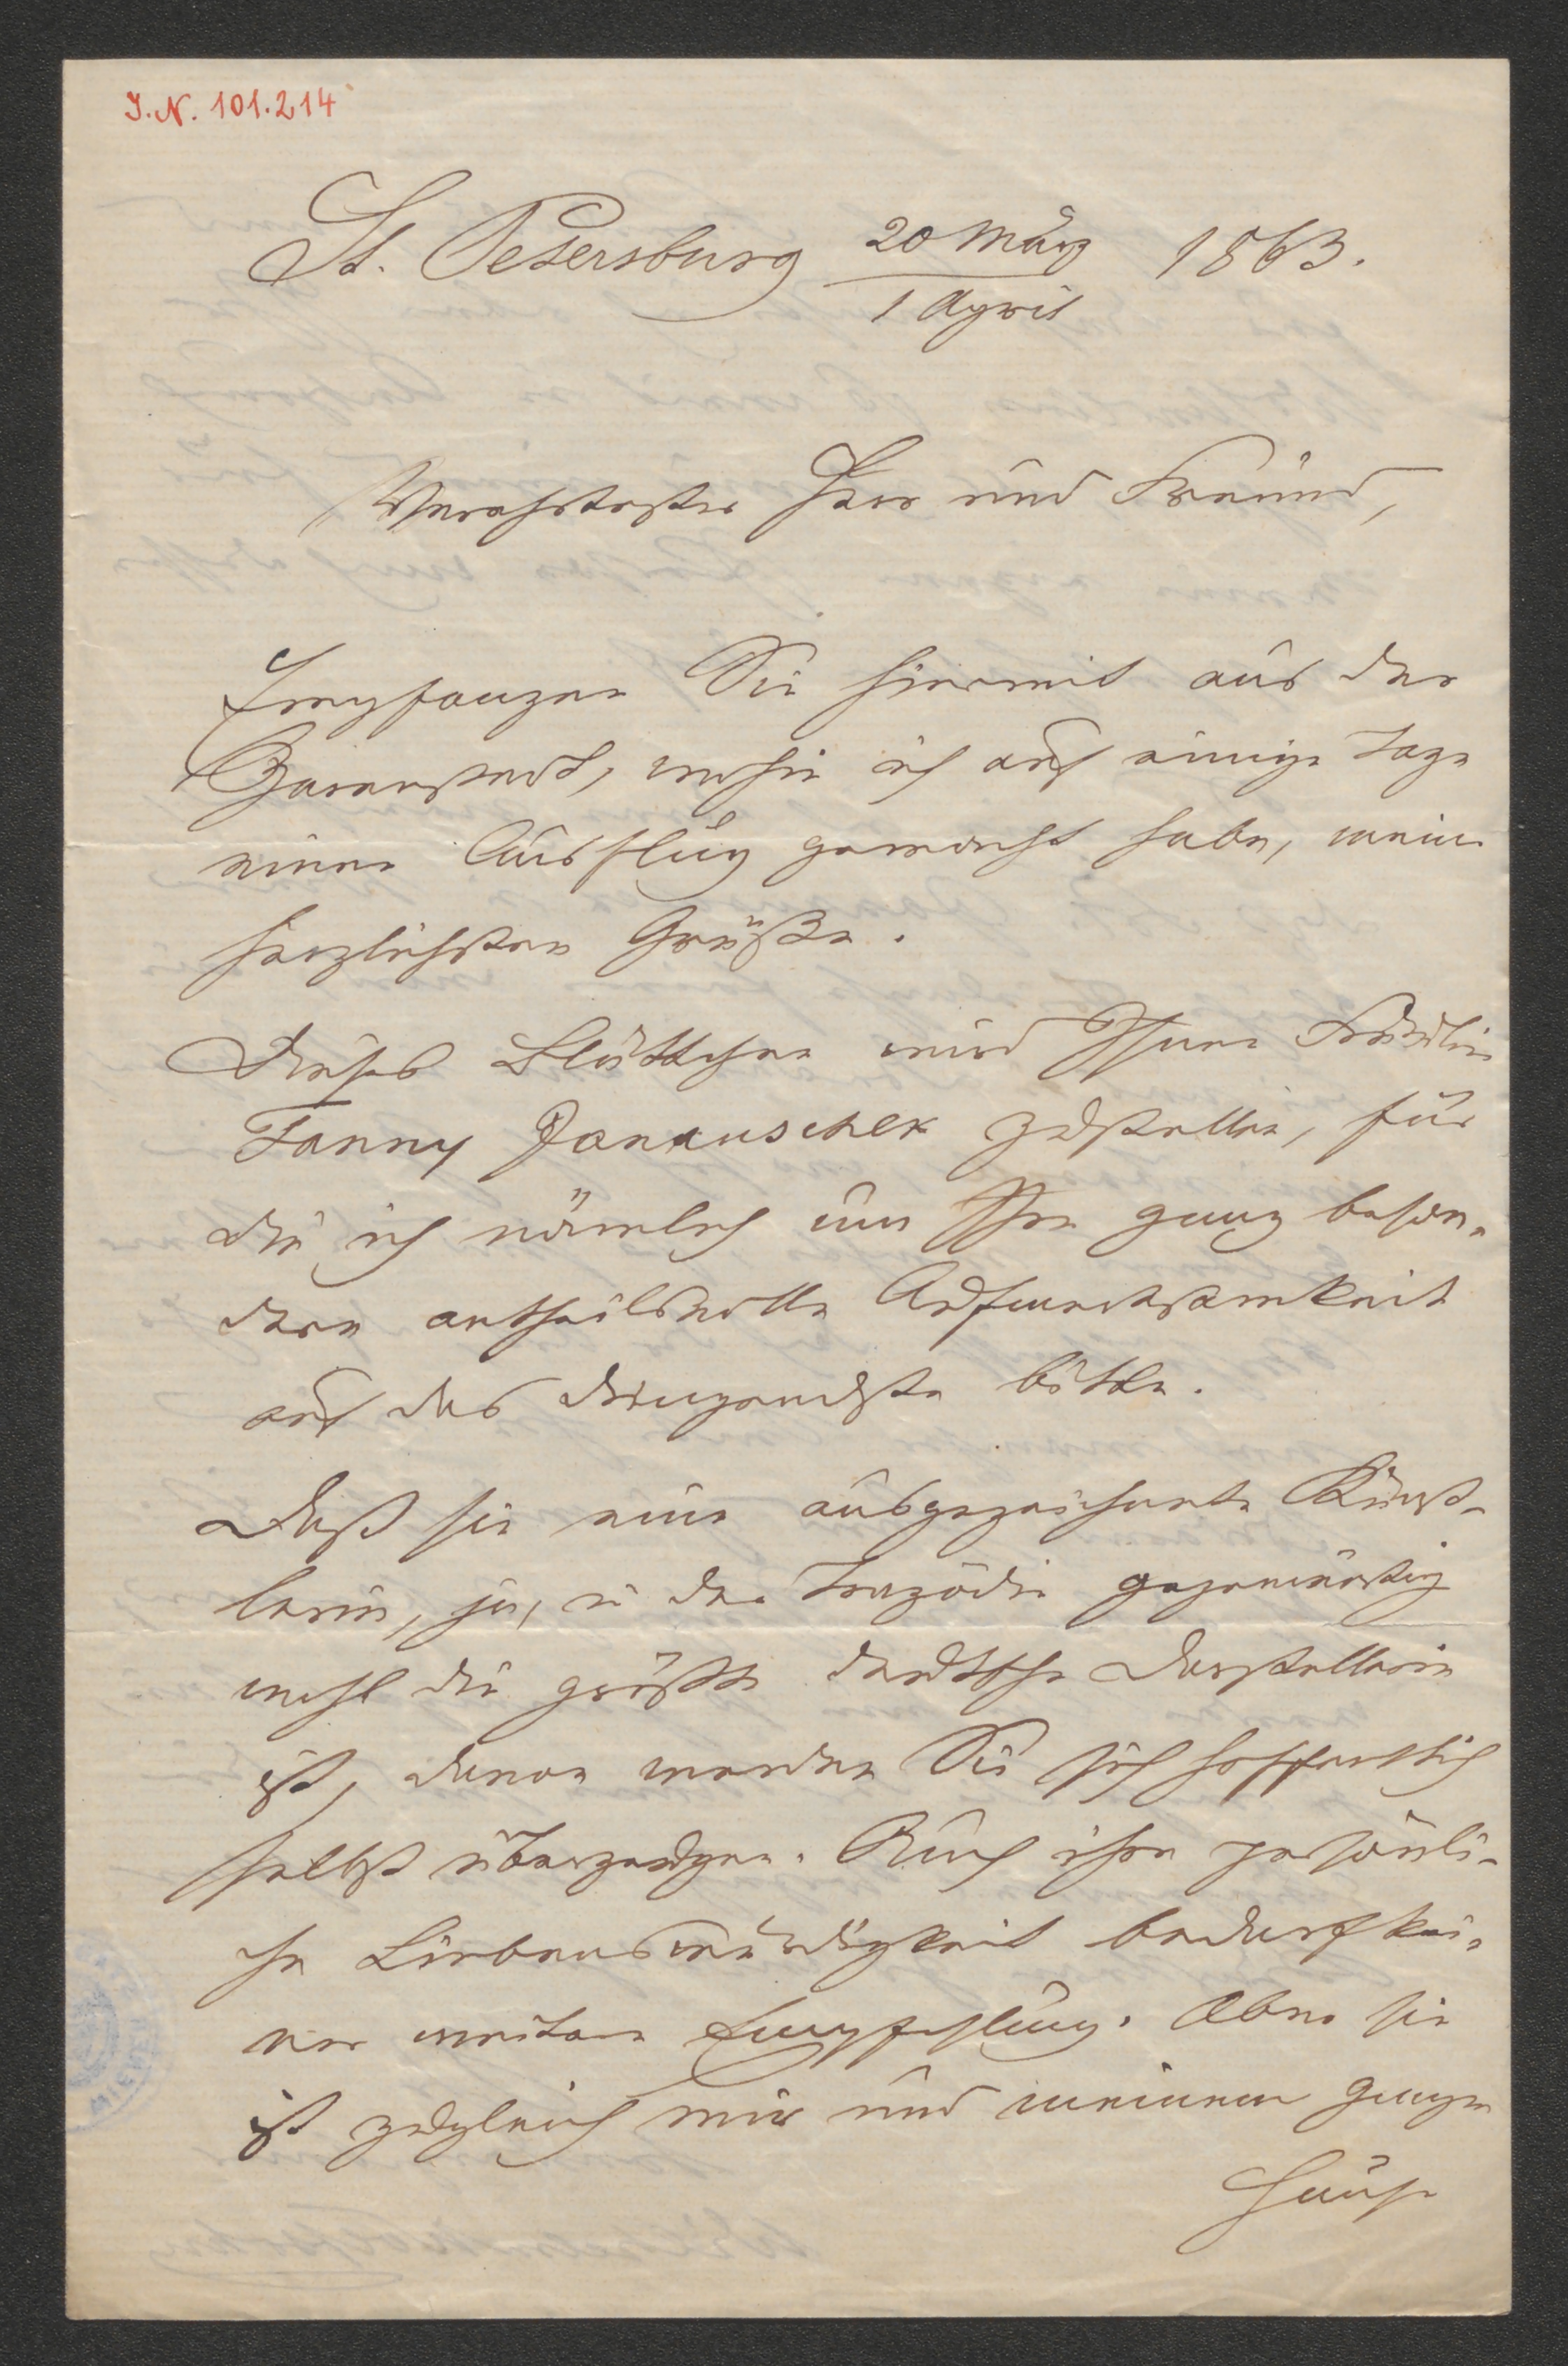 J. N. 101.214
St. Petersburg 20 März / 1 April 1863.
Verehrtester Herr und Freund,
Empfangen Sie hiermit aus der
Zarenstadt, wohin ich auf einige Tage
einen Ausflug gemacht habe, meine
herzlichsten Grüße.
Dieses Blättchen wird Ihnen Fräulein
Fanny Janauschek zustellen, für
die ich nämlich um Ihre ganz beson-
dere antheilsvolle Aufmerksamkeit
auf das dringendste bitte.
Daß sie eine ausgezeichnete Künst-
lerin, ja, in der Tragödie gegenwärtig
wohl die größte deutsche Darstellerin
ist, davon werden Sie sich hoffentlich
selbst überzeugen. Auch ihre persönli-
che Liebenswürdigkeit bedarf kei-
ner weitern Empfehlung. Aber sie
ist zugleich mir und meinem ganzen
Hause